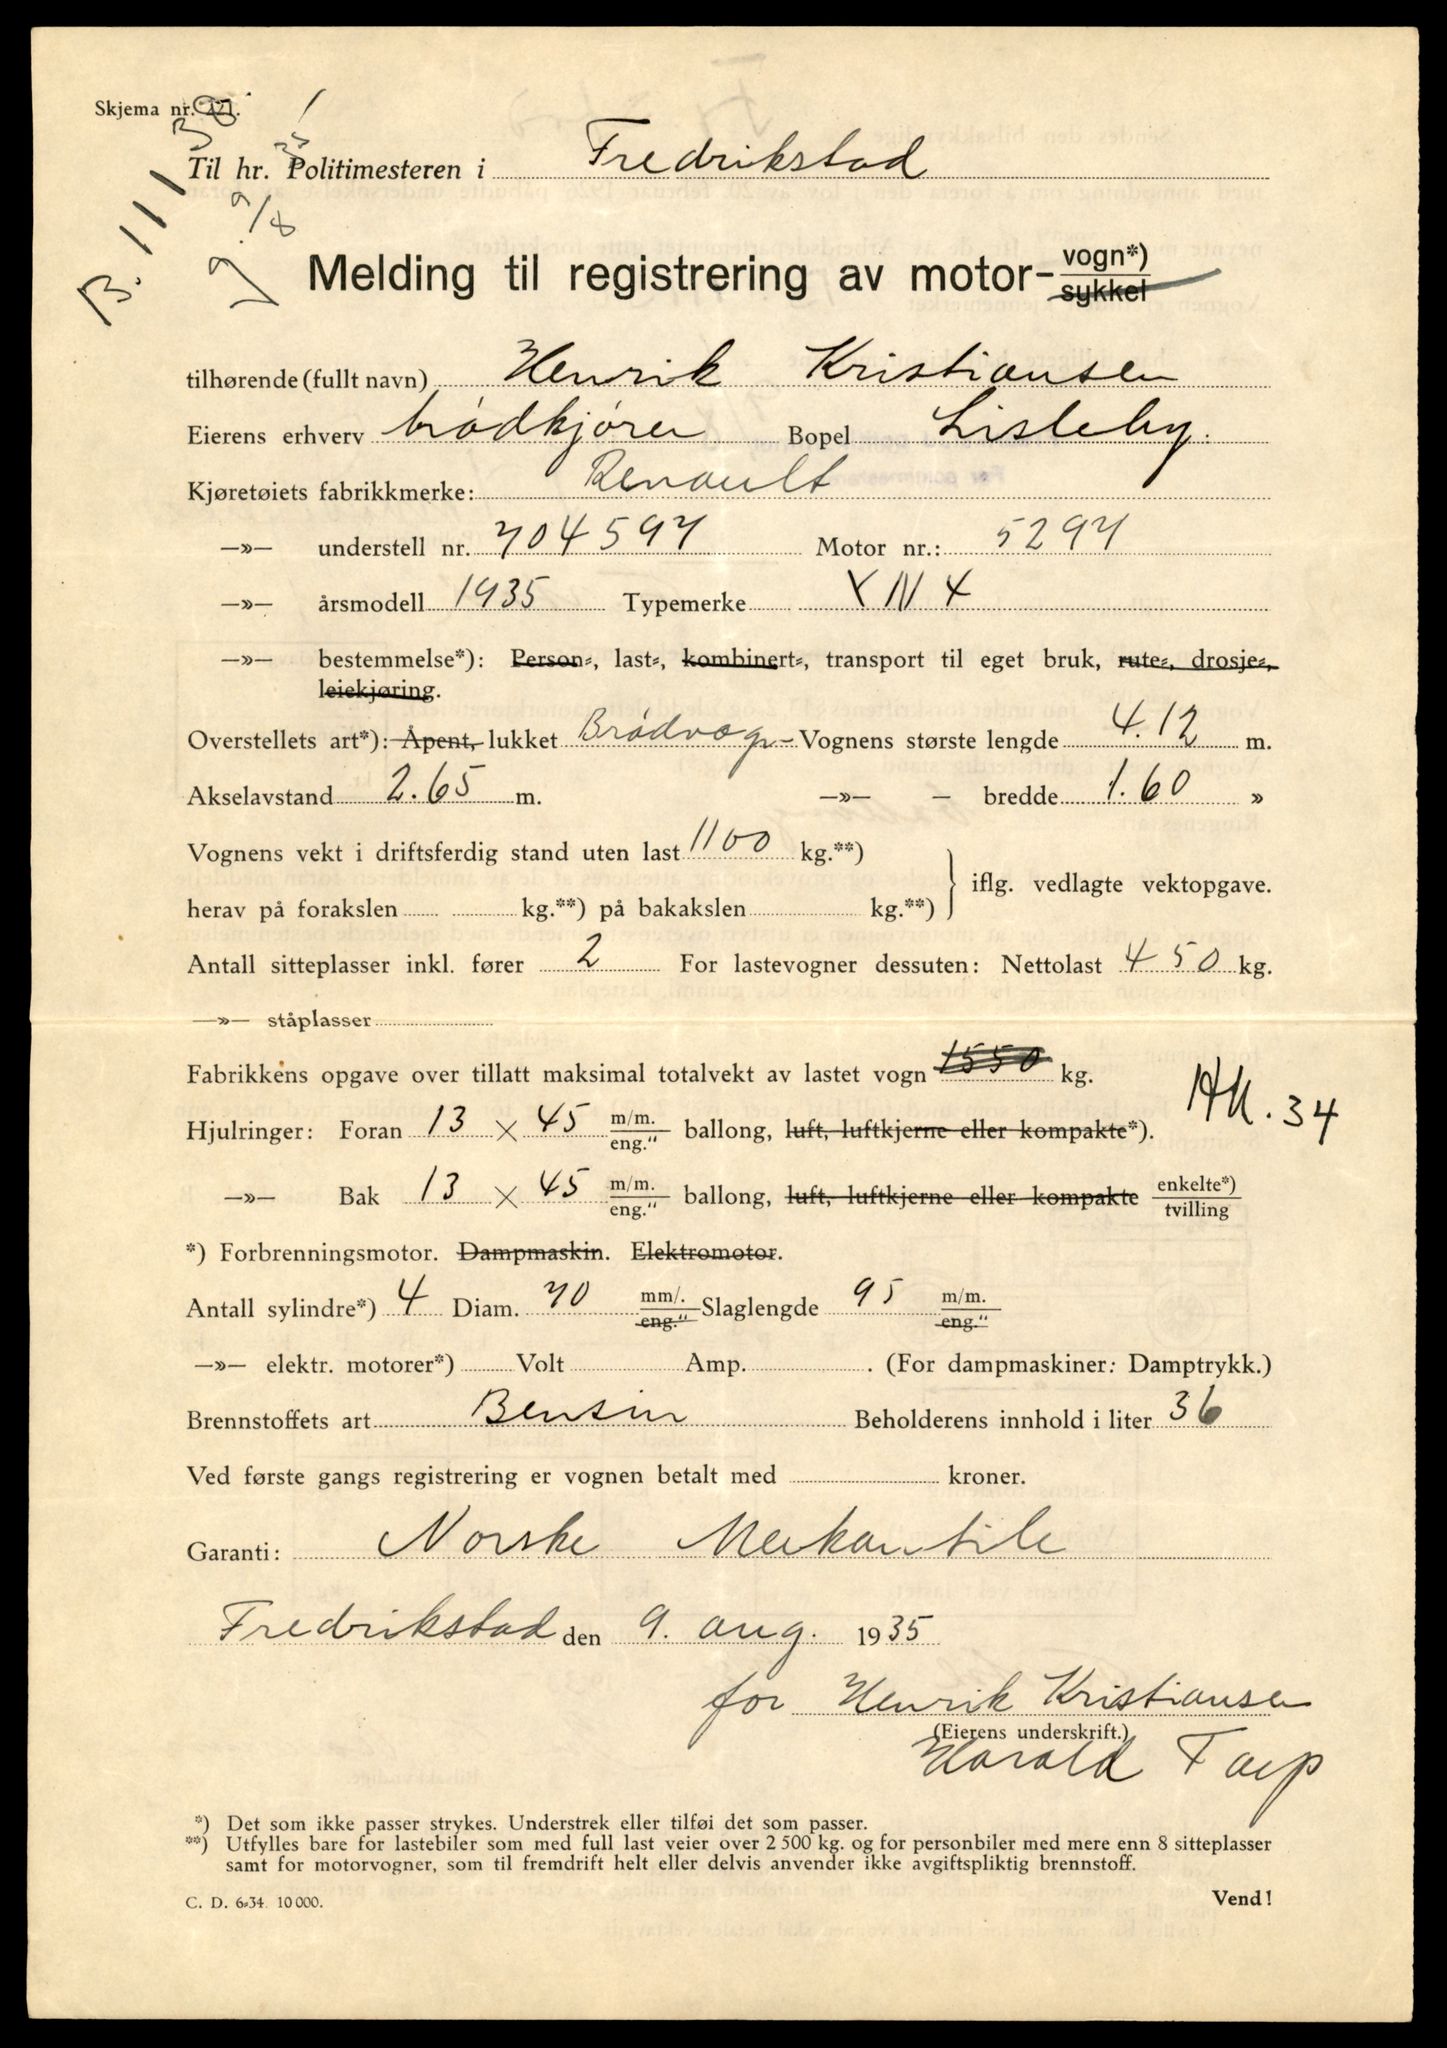 Skjema nr. 221.
B. 11130
9/8 35
Til hr. Politimesteren i Fredrikstad
Melding til registrering av motor- vogn*)
sykkel
tilhørende (fullt navn) Henrik Kristiansen
Eierens erhverv brødkjører Bopel Lisleby.
Kjøretøiets fabrikkmerke: Renault
—»— understell nr. 704597 Motor nr.: 5297
—»— årsmodell 1935 Typemerke YN 4
—»— bestemmelse*): Person-, last-, kombinert-, transport til eget bruk, rute-, drosje-,
leiekjøring.
Overstellets art*): Åpent, lukket Brødvogn- Vognens største lengde 4.12 m.
Akselavstand 2.65 m. —»— — bredde 1.60 »
Vognens vekt i driftsferdig stand uten last 1100 kg.**)
herav på forakslen kg.**) på bakakslen kg.**) iflg. vedlagte vektopgave.
Antall sitteplasser inkl. fører 2 For lastevogner dessuten: Nettolast 450 kg.
—»— ståplasser
Fabrikkens opgave over tillatt maksimal totalvekt av lastet vogn 1550 kg.
34
Hjulringer: Foran 13 × 45 m/m. eng." ballong, luft, luftkjerne eller kompakte*).
—»— Bak 13 × 45 m/m. eng." ballong, luft, luftkjerne eller kompakte enkelte*) tvilling
*) Forbrenningsmotor. Dampmaskin. Elektromotor.
Antall sylindre*) 4 Diam. 70 mm/. eng." Slaglengde 95 m/m. eng."
—»— elektr. motorer*) Volt Amp. . (For dampmaskiner: Damptrykk.)
Brennstoffets art Bensin Beholderens innhold i liter 36
Ved første gangs registrering er vognen betalt med kroner.
Garanti: Norske Merkantile
Fredrikstad den 9. aug. 1935
for Henrik Kristiansen
(Eierens underskrift.)
Harald Tarp
*) Det som ikke passer strykes. Understrek eller tilføi det som passer.
**) Utfylles bare for lastebiler som med full last veier over 2 500 kg. og for personbiler med mere enn 8 sitteplasser
samt for motorvogner, som til fremdrift helt eller delvis anvender ikke avgiftspliktig brennstoff.
C. D. 6-34. 10 000. Vend!